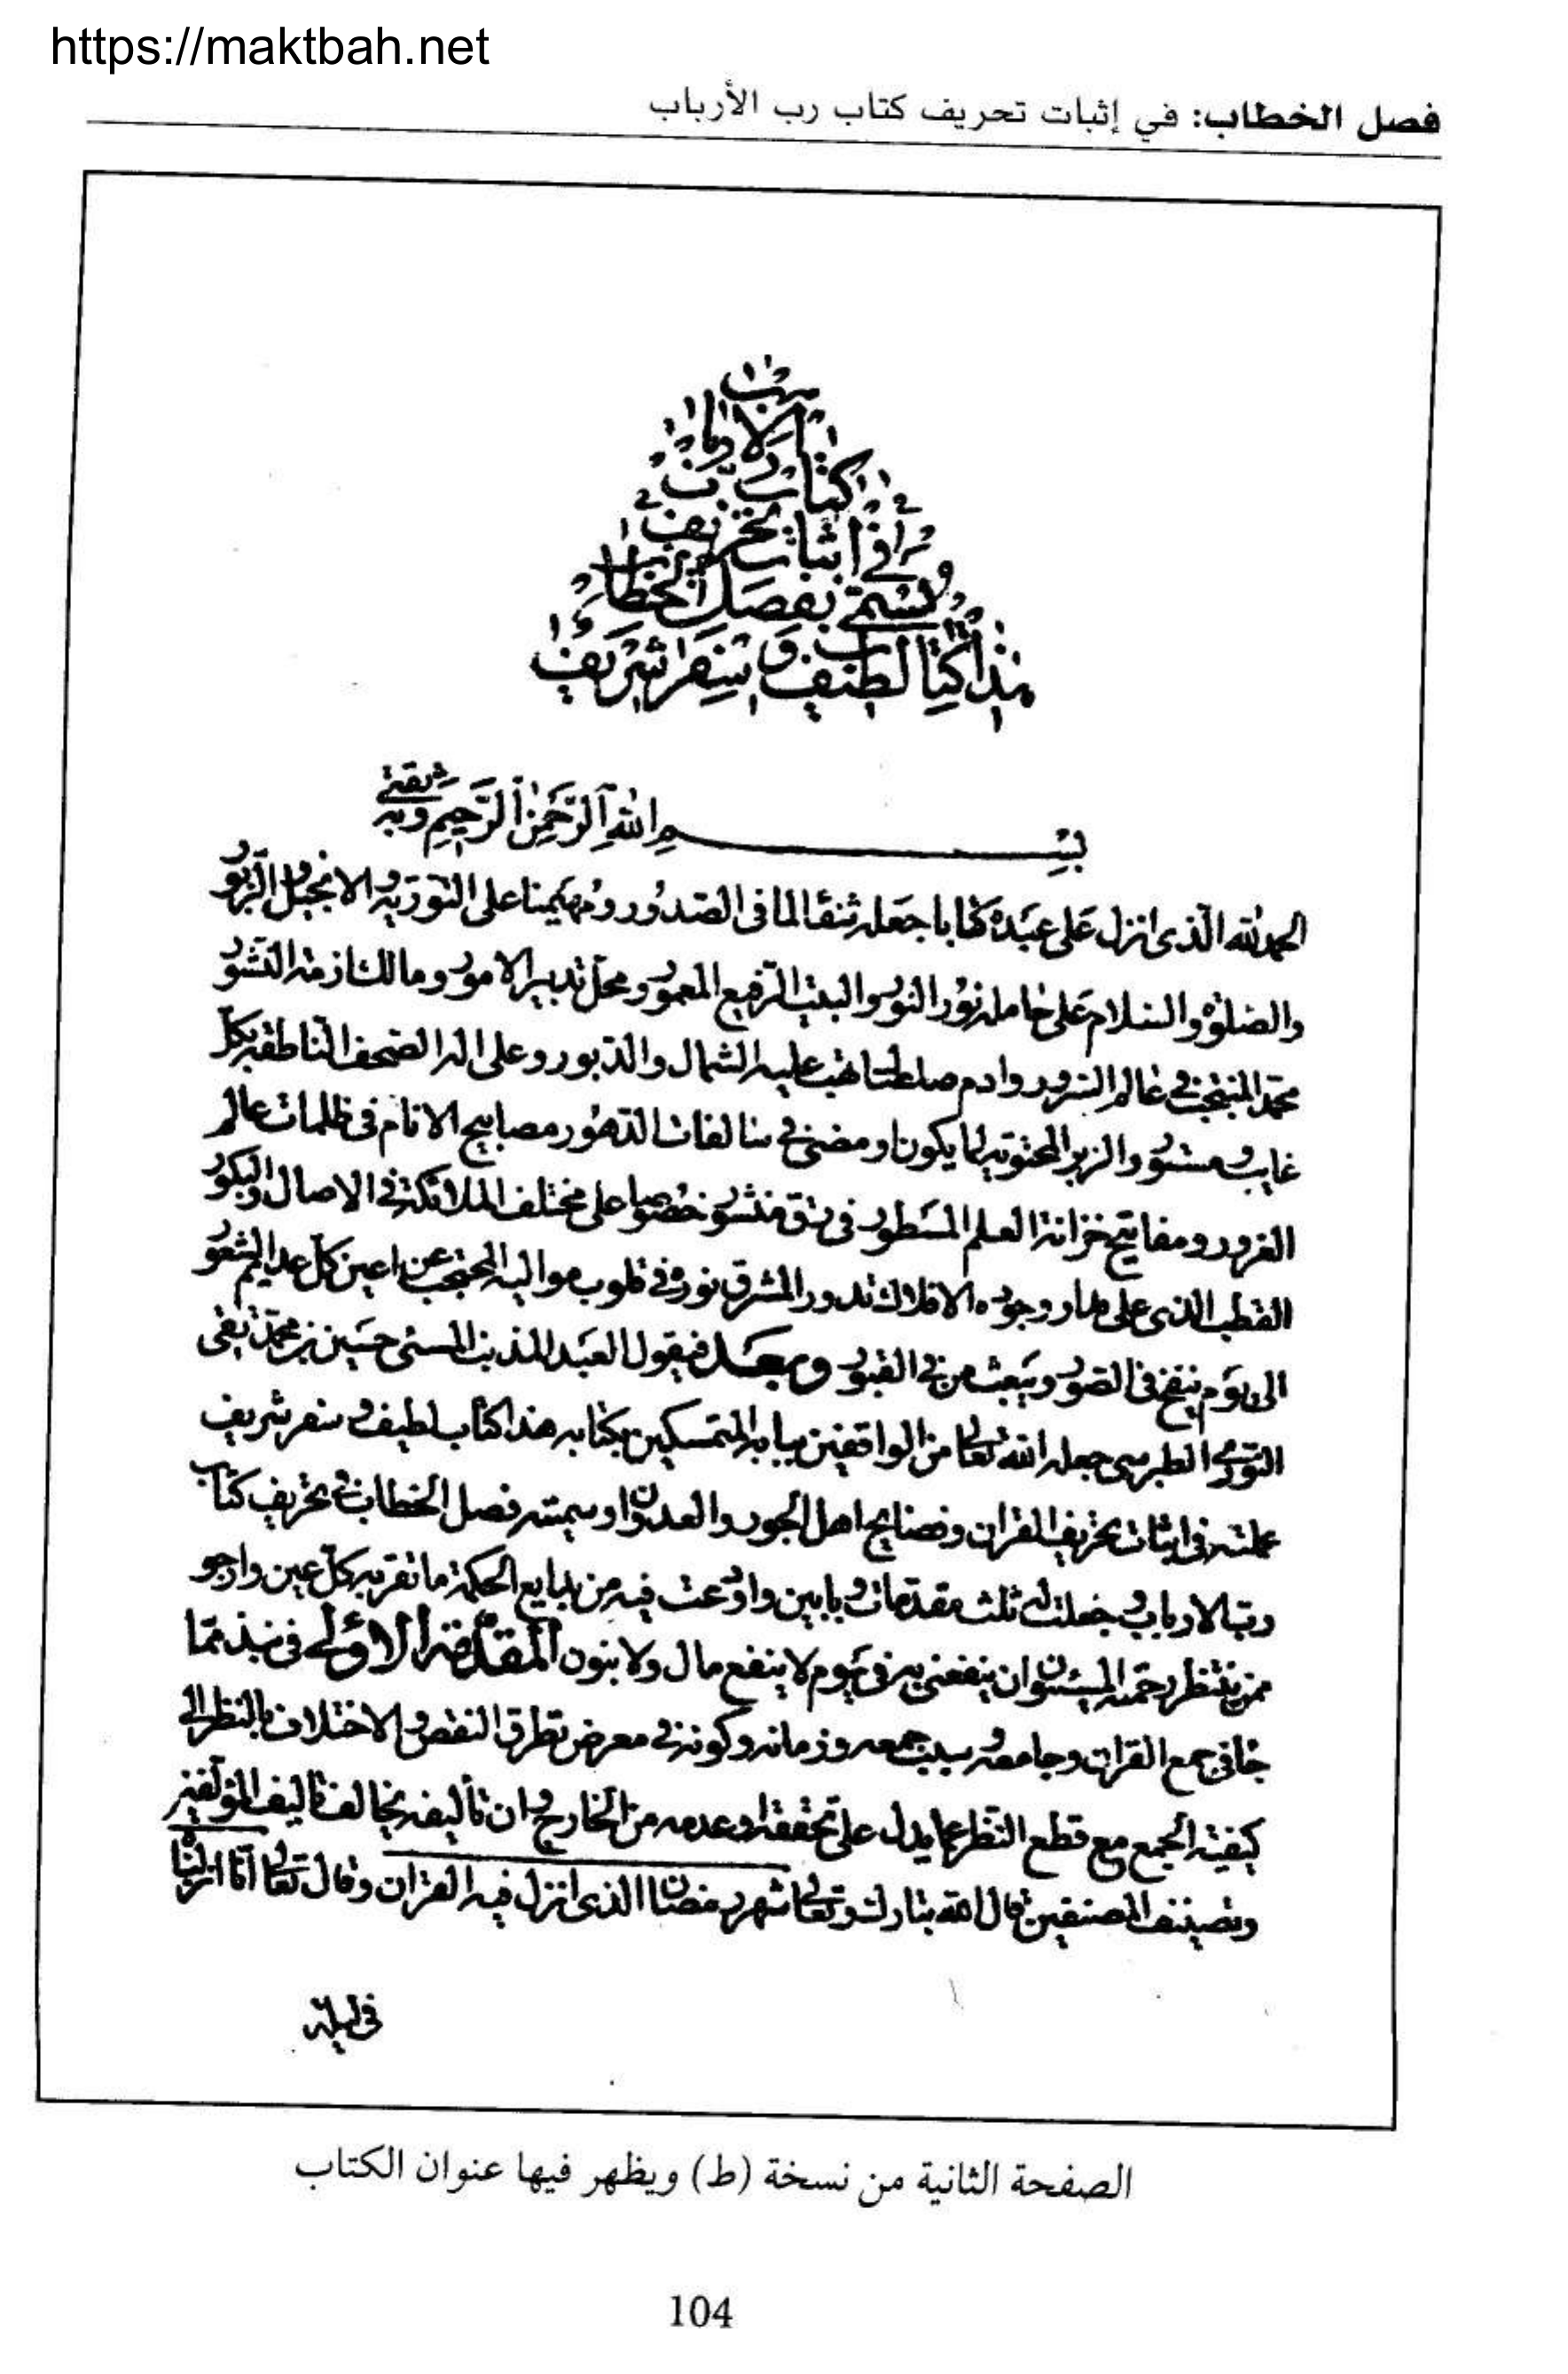 https://maktbah.net
فصل الخطاب: في إثبات تحريف كتاب رب الأرباب
الارباب
كتاب رب
في اثبات تحريف
يسمى بفصل الخطاب
هذا كتاب لطيف و سفر شريف
بسم الله الرحمن الرحيم وبه ثقتي
الحمد لله الذى انزل على عبده كتابا جعله شفآء لما فى الصدور ومهيمنا على التورية والانجيل والزبور
والصلوة والسلام على حامله نور النور والبيت الرفيع المعمور ومحل تدبير الامور ومالك ازمة النشور
محمد المنتجب فى عالم السرور وادم صلصل تهب عليه الشمال والدبور وعلى اله الصحف الناطقة بكل
غايب ومستور والزبر المحتوية لما يكون او مضى فى سالفات الدهور مصابيح الانام فى ظلمات عالم
الغرور ومفاتيح خزانة العلم المسطور فى رق منشور خصوصا على مختلف الملائكة فى الاصال والبكور
القطب الذى على مدار وجوده الافلاك تدور المشرق نوره فى قلوب مواليه المحتجب عن اعين كل عديم الشعور
الى يوم ينفخ فى الصور ويبعث من فى القبور وبعد فيقول العبد المذنب المسئ حسين بن محمد تقى
النورى الطبرسى جعله الله تعالى من الواقفين ببابه المتمسكين بكتابه هذا كتاب لطيف و سفر شريف
عملته فى اثبات تحريف القران وفضايح اهل الجور والعدوان وسميته فصل الخطاب فى تحريف كتاب
رب الارباب وجعلت له ثلث مقدمات وبابين واودعت فيه من بدايع الحكمة ما تقر به كل عين وارجو
ممن ينتظر رحمته المسيئون ان ينفعنى به فى يوم لا ينفع مال ولا بنون المقدمة الاولى فى نبذ مما
جاء فى جمع القران وجامعه وسبب جمعه وزمانه وكونه فى معرض تطرق النقص والاختلاف بالنظر الى
كيفية الجمع مع قطع النظر عما يدل على تحققه او عدمه من الخارج وان تأليفه يخالف تأليف المؤلفين
وتصنيف المصنفين قال الله تبارك وتعالى شهر رمضان الذى انزل فيه القران وقال تعالى انا انزلناه
فى ليلة
الصفحة الثانية من نسخة (ط) ويظهر فيها عنوان الكتاب
104